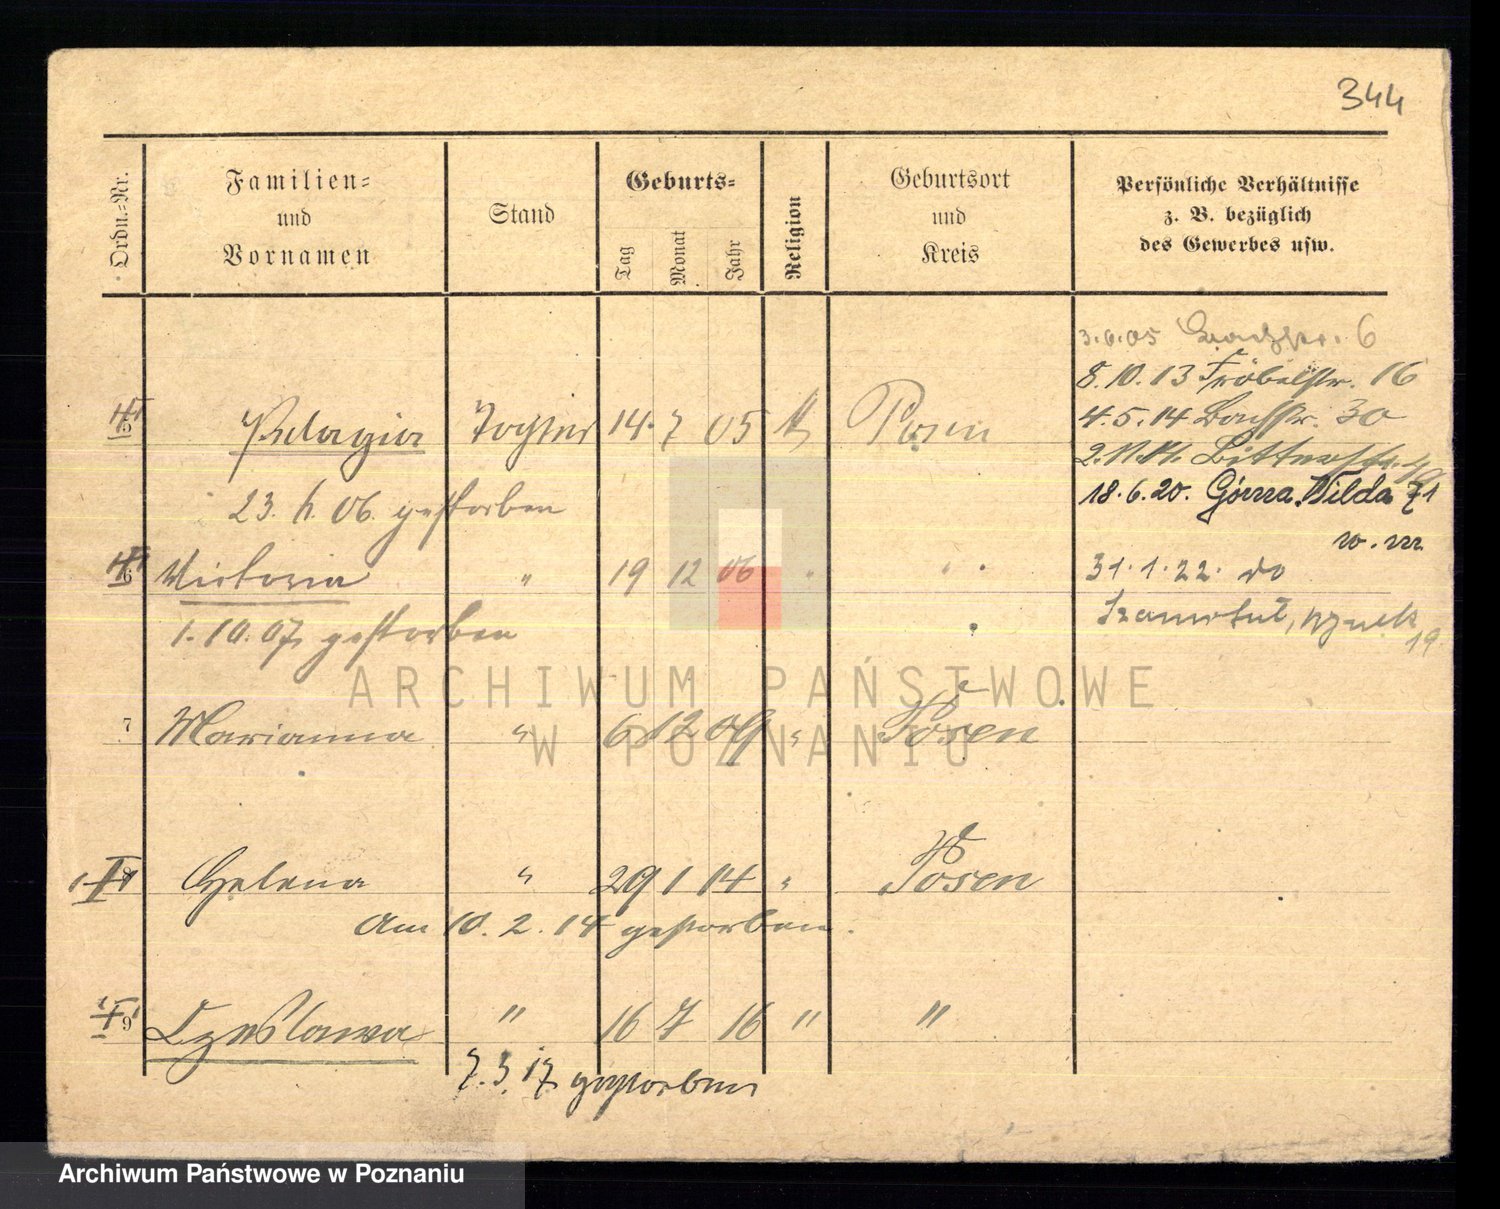 344
Ordn.-Nr.
Familien-
und
Vornamen
Stand
Geburts-
Tag
Monat
Jahr
Religion
Geburtsort
und
Kreis
Persönliche Verhältnisse
z. B. bezüglich
des Gewerbes usw.
3.6.05 6
8.10.13 Fröbelstr. 16
4.5.14 Bachstr. 30
5 Pelagia Tochter 14. 7 05 k Posen
18.6.20. Górna Wilda 71
23. 06. gestorben
w. m.
6 Victoria " 19 12 06 " "
31.1.22. do
1.10.07 gestorben
19
ARCHIWUM PAŃSTWOWE
W POZNANIU
7 Marianna " 6 12 09 " Posen
8 Helena " 29 1 14 " Posen
Am 10.2.14 gestorben.
9 Czeslawa " 16 7 16 " "
7.3.17 gestorben
Archiwum Państwowe w Poznaniu